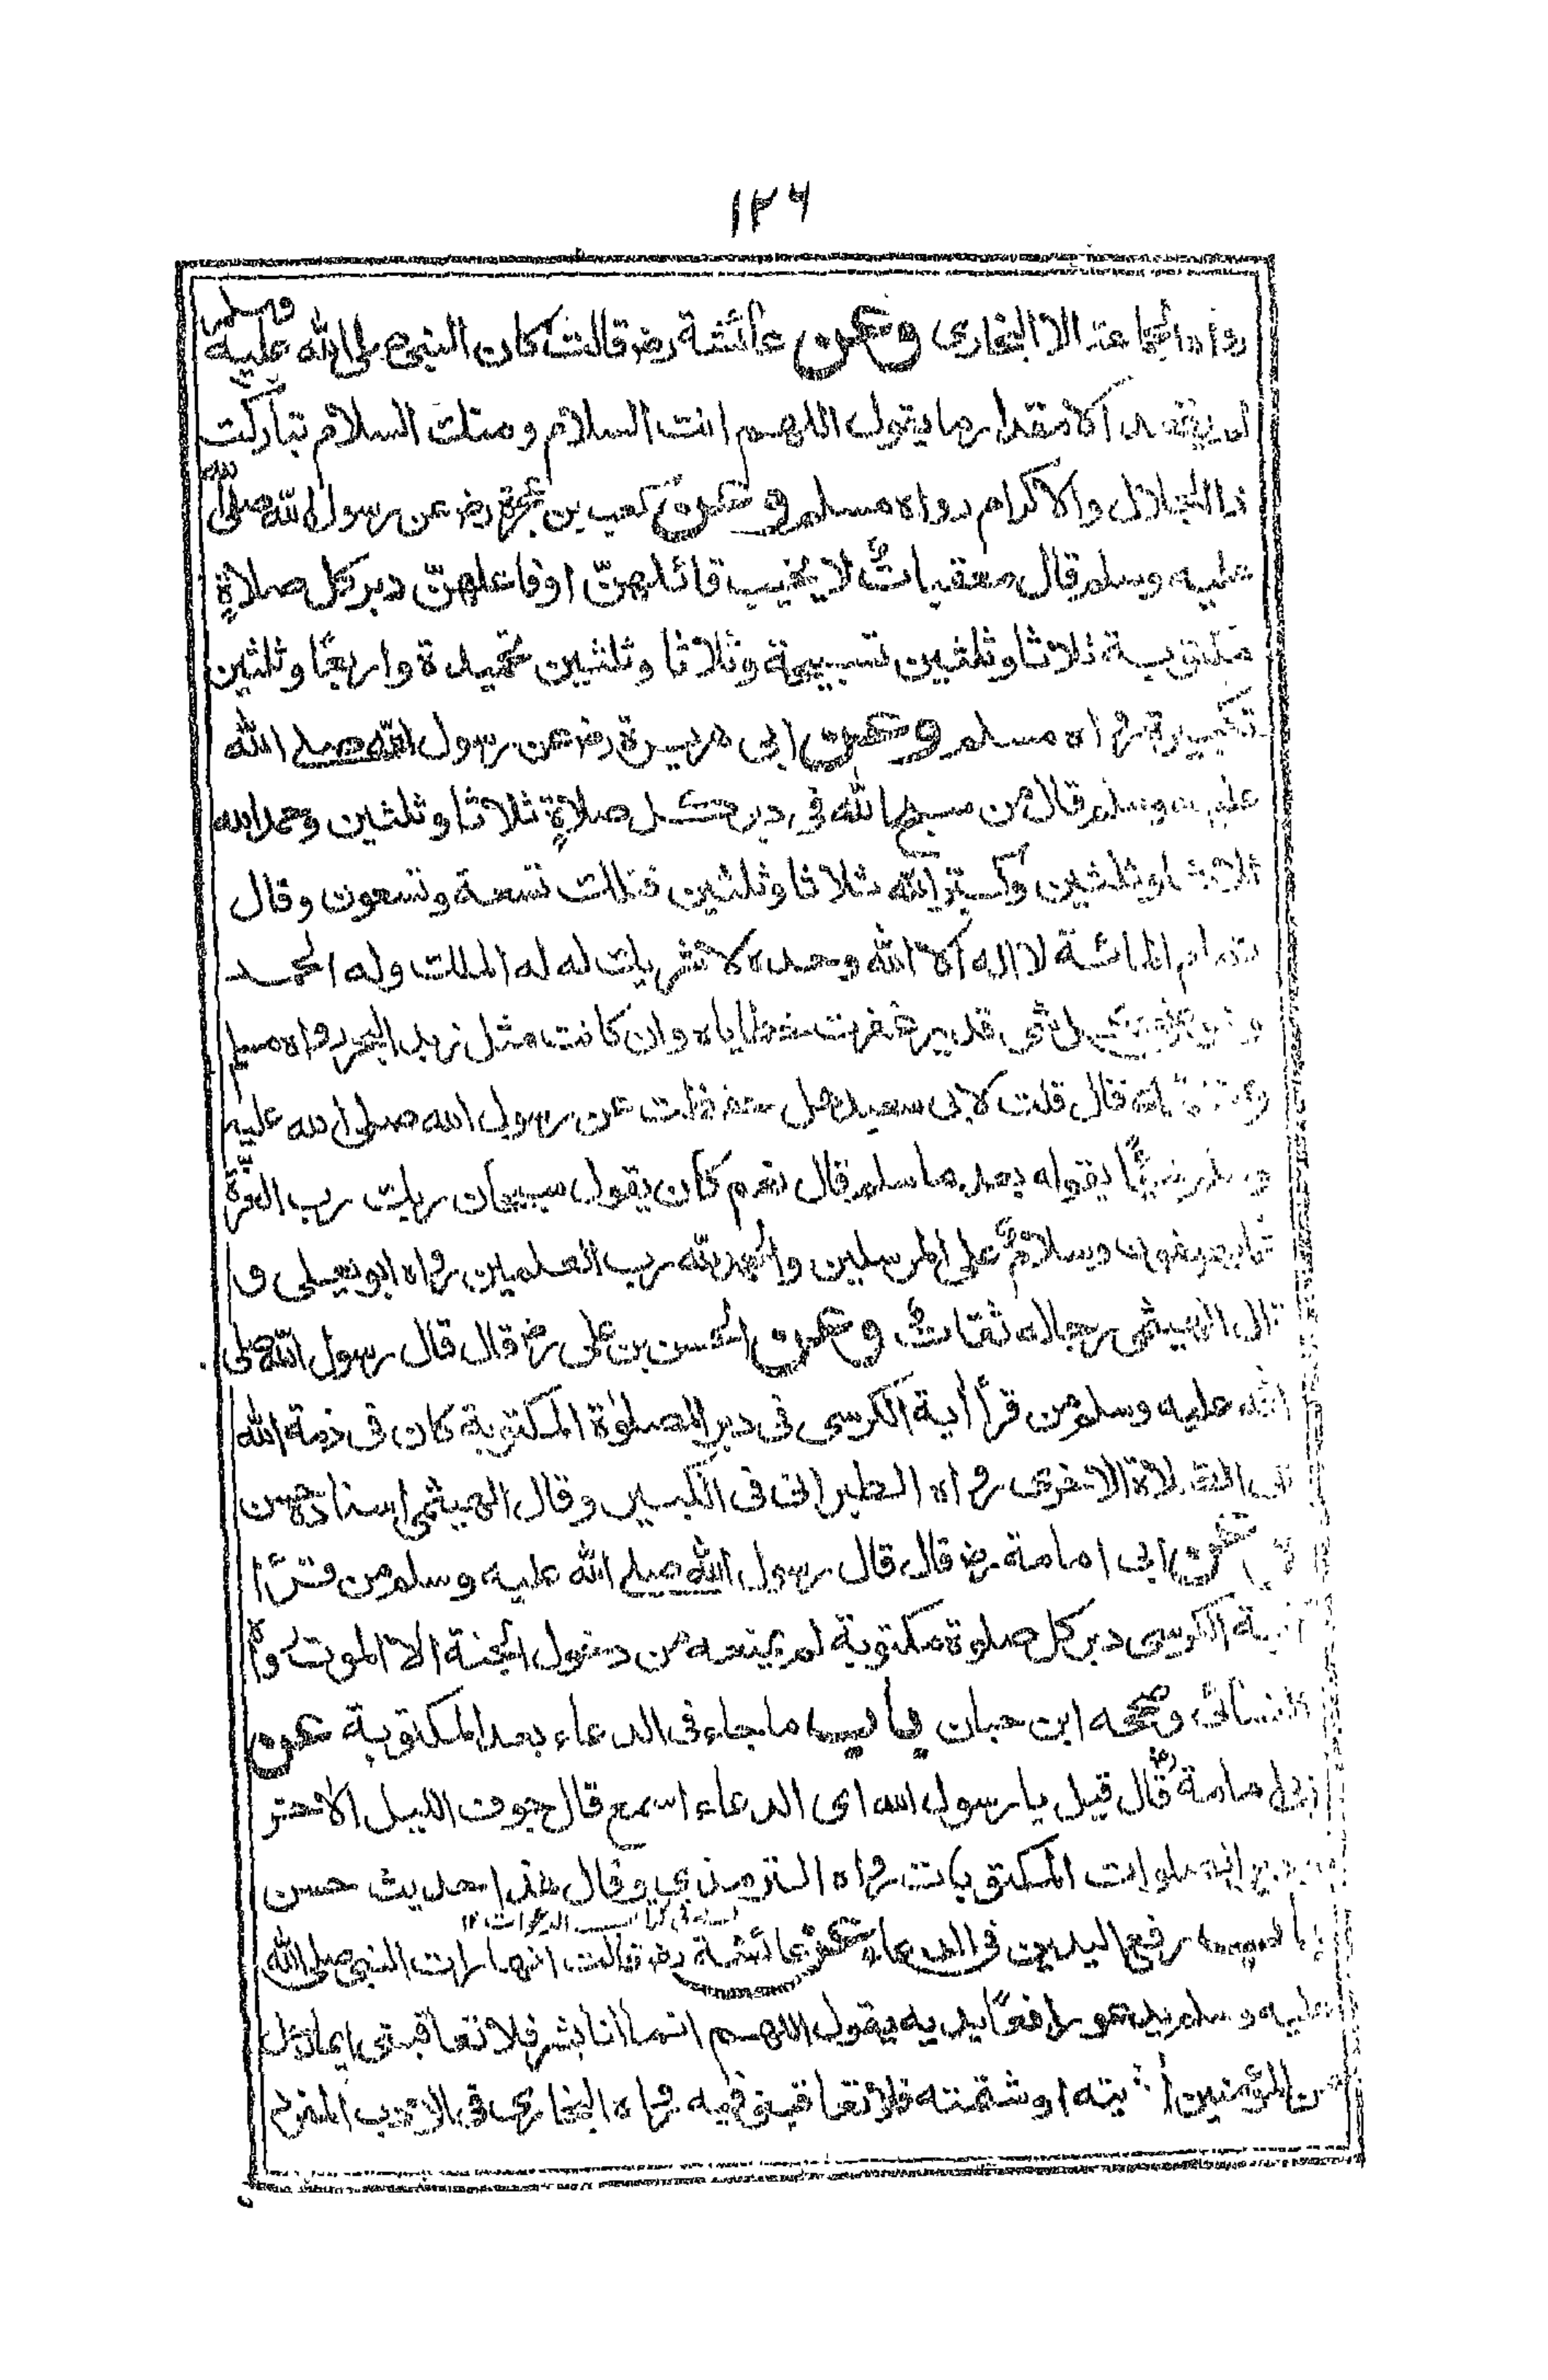 ١٢٦
رواه الجماعة الا البخارى وعن عائشة رضـ قالت كان النبى صلى الله عليه وسلم
لم يقعد الا مقدار ما يقول اللهم انت السلام ومنك السلام تباركت
ذا الجلال والاكرام رواه مسلم وعن كعب بن عجرة رضـ عن رسول الله صلى الله
عليه وسلم قال معقباتٌ لا يخيب قائلهنّ او فاعلهنّ دبر كل صلاةٍ
مكتوبة ثلاثا وثلثين تسبيحة وثلاثا وثلثين تحميدة واربعًا وثلثين
تكبيرة رواه مسلم وعن ابى هريرة رضـ عن رسول الله صلى الله
عليه وسلم قال من سبح الله فى دبر كل صلاةٍ ثلاثا وثلثين وحمد الله
ثلاثا وثلثين وكبّر الله ثلاثا وثلثين فتلك تسعة وتسعون وقال
تمام المائة لا اله الا الله وحده لا شريك له له الملك وله الحمد
وهو على كل شئ قدير غفرت خطاياه وان كانت مثل زبد البحر رواه مسلم
وعنه قال قلت لابى سعيد هل حفظت عن رسول الله صلى الله عليه
وسلم شيئًا يقوله بعد ما سلم قال نعم كان يقول سبحان ربك رب العزّة
عما يصفون وسلامٌ على المرسلين والحمد لله رب العلمين رواه ابو يعلى و
قال الهيثمى رجاله ثقاتٌ وعن الحسن بن على رضـ قال قال رسول الله صلى
الله عليه وسلم من قرأ أية الكرسى فى دبر الصلوٰة المكتوبة كان فى ذمة الله
الى الصلاة الاخرى رواه الطبرانى فى الكبير وقال الهيثمى اسناده حسن
وعن ابى امامة رضـ قال قال رسول الله صلى الله عليه وسلم من قرأ
أية الكرسى دبر كل صلوة مكتوبة لم يمنعه من دخول الجنة الا الموت رواه
النسائى وصححه ابن حبان باب ما جاء فى الدعاء بعد المكتوبة عن
ابى امامة رضـ قال قيل يا رسول الله اى الدعاء اسمع قال جوف الليل الاخر
ودبر الصلوات المكتوبات رواه الترمذى وقال هذا حديث حسن
باب رفع اليدين فى الدعاء عن عائشة رضـ قالت انها رات النبى صلى الله
عليه وسلم يدعو رافعًا يديه يقول اللهم انما انا بشر فلا تعاقبنى ايما رجل
من المؤمنين أذيته او شتمته فلا تعاقبنى فيه رواه البخارى فى الادب المفرد